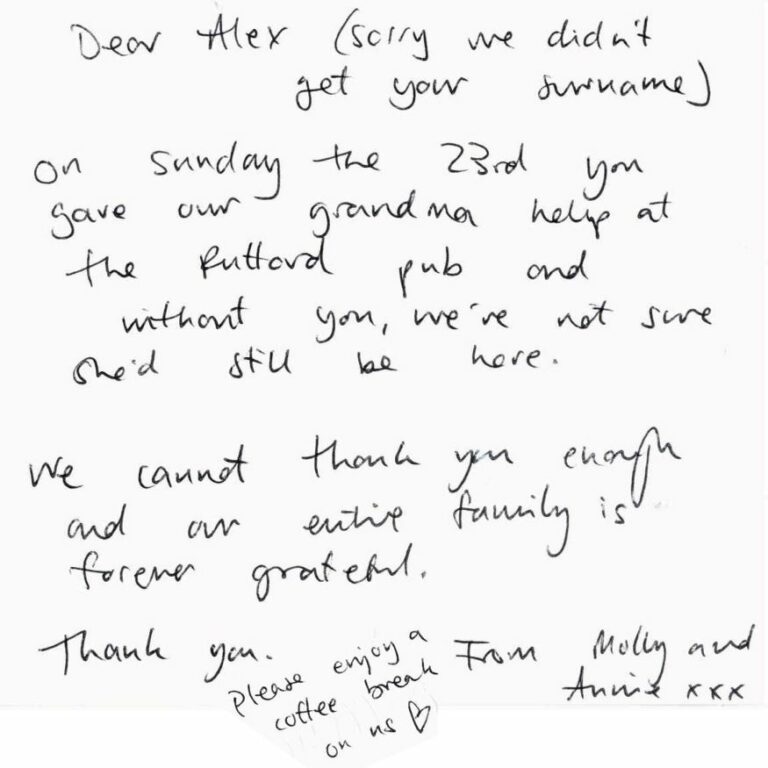 Dear Alex (sorry we didn't
get your surname)
On Sunday the 23rd you
gave our grandma help at
the Ruttord pub and
without you, we're not sure
she'd still be here.
We cannot thank you enough
and our entire family is
forever grateful.
Thank you.
From Molly and
Annie xxx
Please enjoy a
coffee break
on us ♡